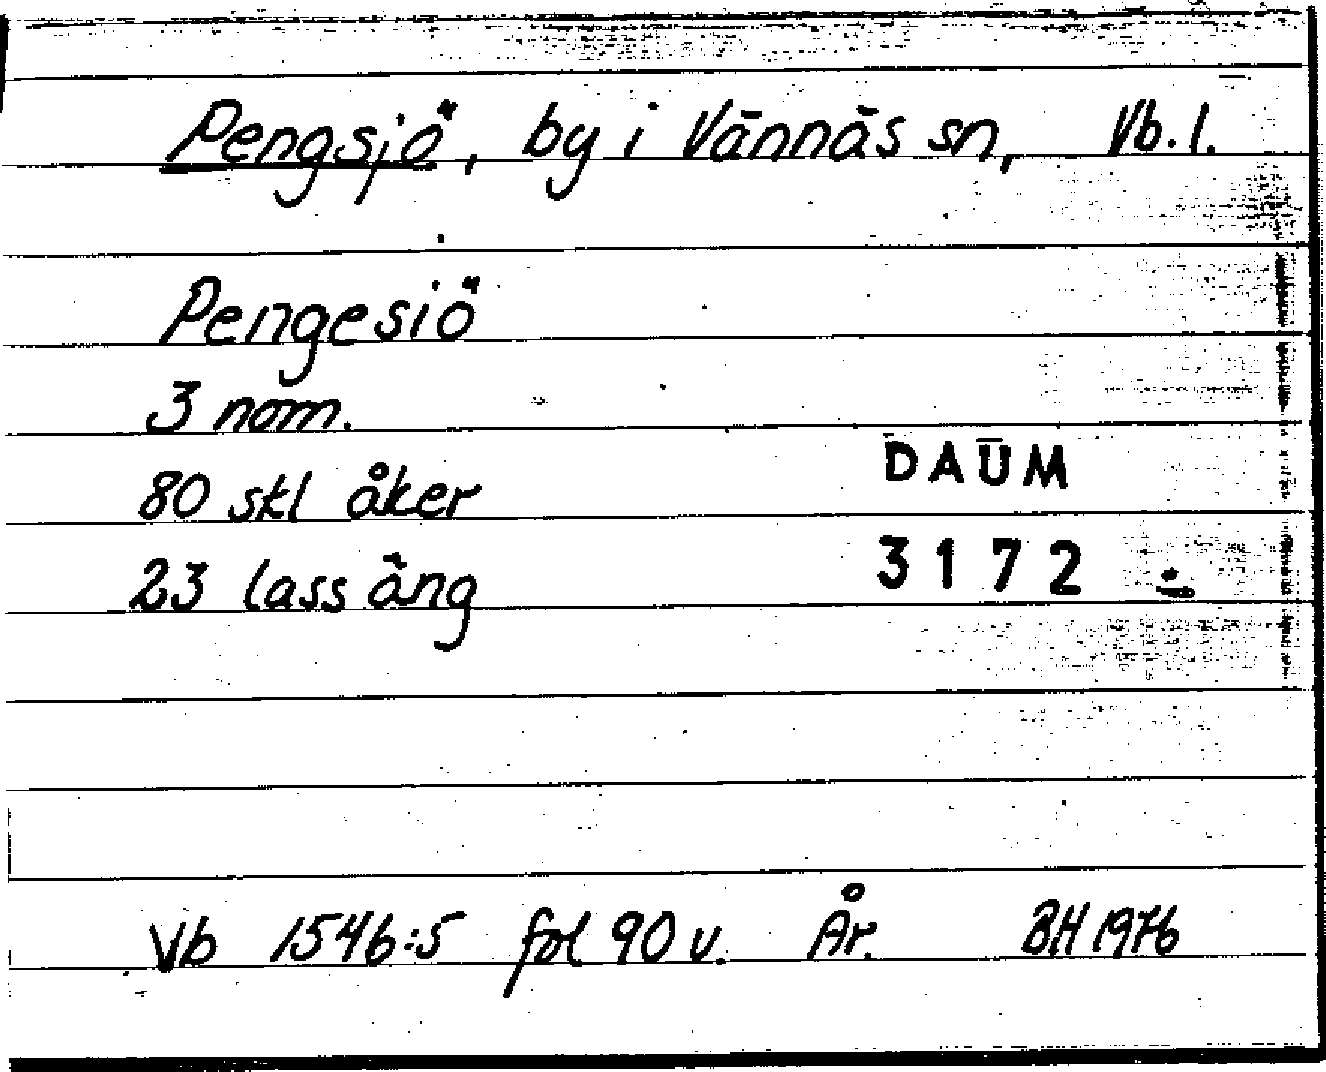 Pengsjö, by i Vännäs sn, Vb. l.
Pengesiö
3 nom.
80 skl åker
DAUM
23 lass äng
3172
Vb 1546:5 fol 90 v. År. BH 1976